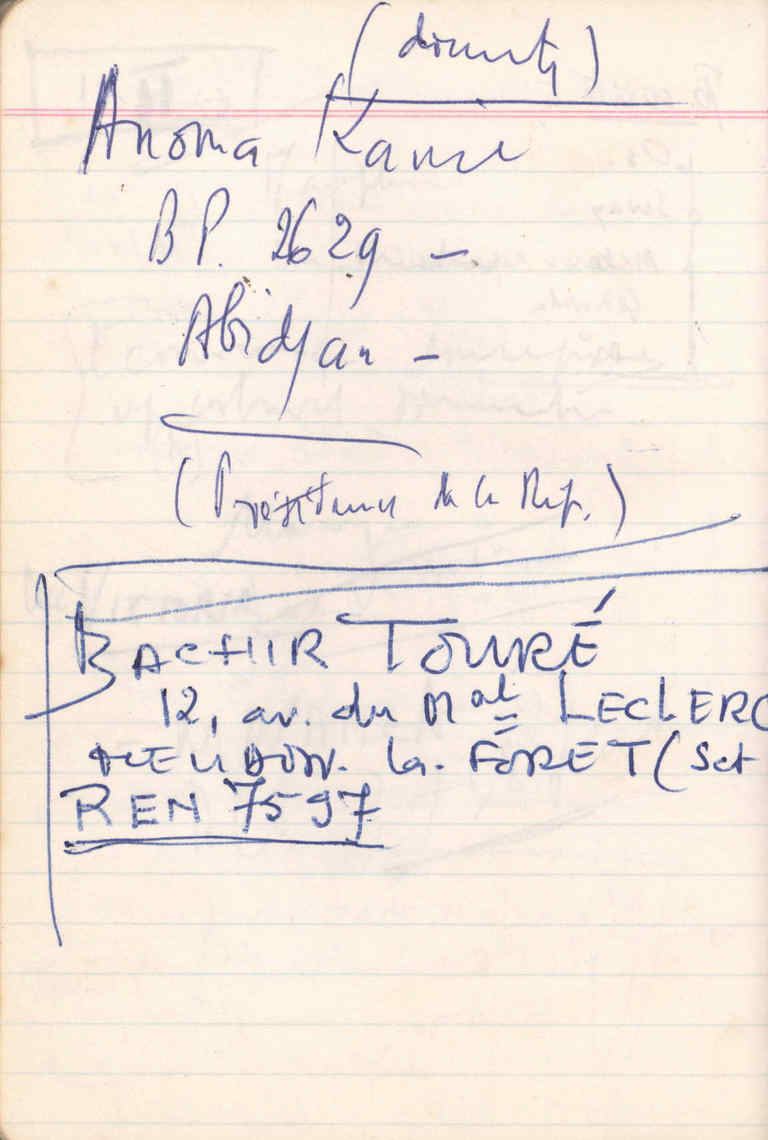 Anoma Kanié
BP. 2629 -
Abidjan -
(Présidence de la Rép.)
BACHIR TOURÉ
12, av. du Mal LECLERC
MEUDON. la. FORET (Set
REN 7597